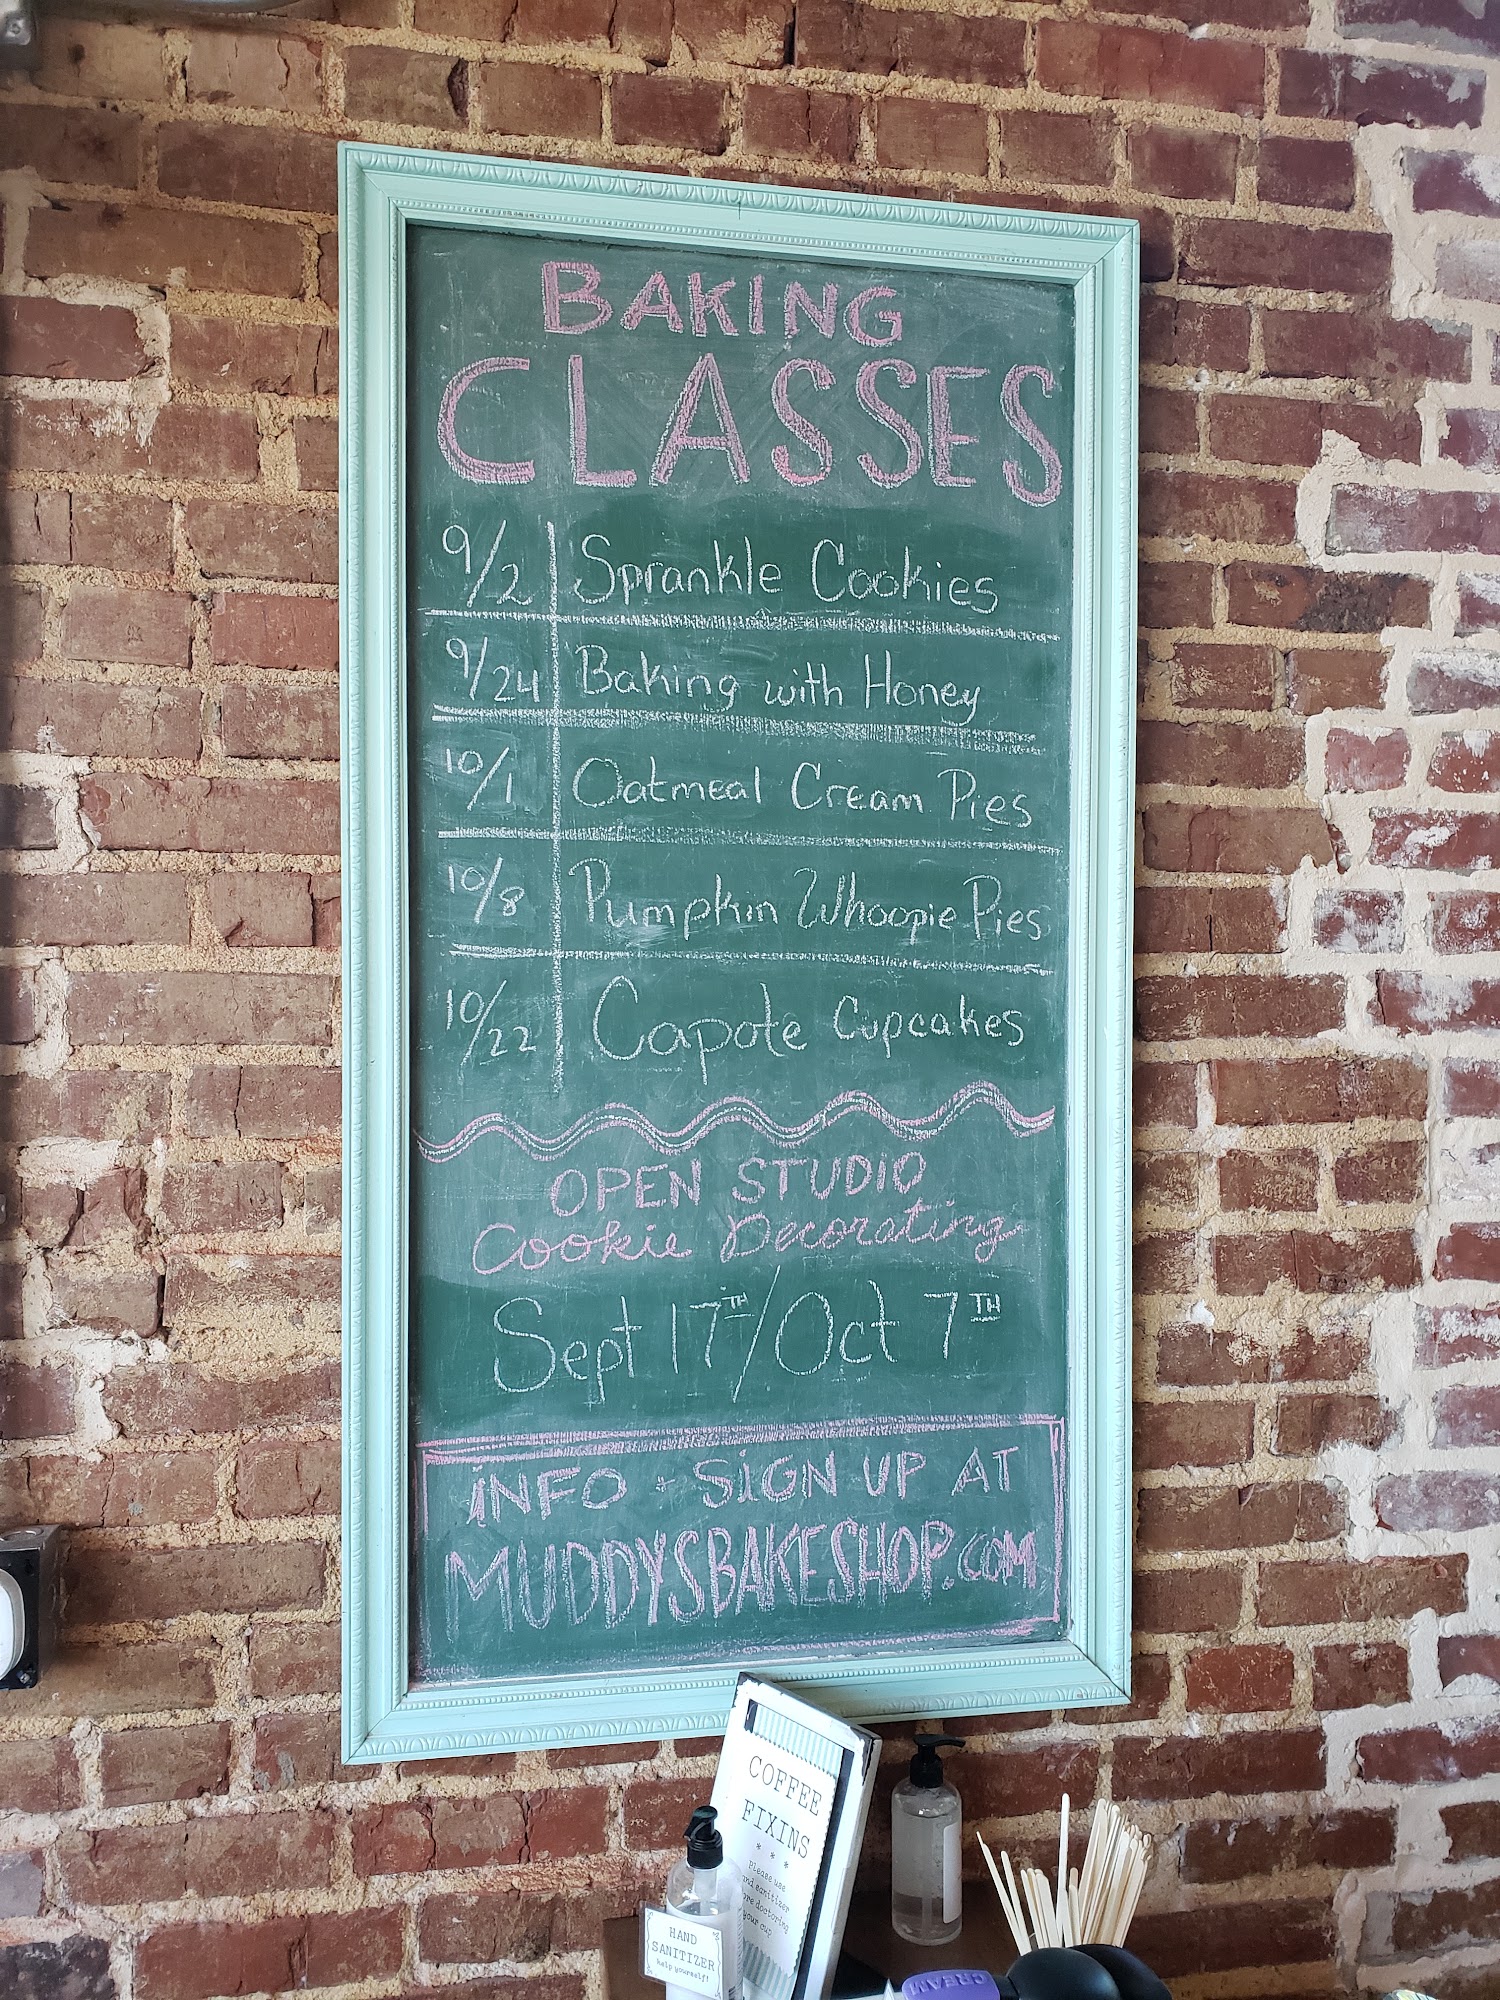 BAKING
CLASSES
9/2 Sprankle Cookies
9/24 Baking with Honey
10/1 Oatmeal Cream Pies
10/8 Pumpkin Whoopie Pies
10/22 Capote Cupcakes
OPEN STUDIO
Cookie Decorating
Sept 17TH/Oct 7TH
INFO + SIGN UP AT
MUDDYSBAKESHOP.COM
COFFEE
FIXINS
* * *
Please use
sanitizer
doctoring
your cup
HAND
SANITIZER
help yourself!
CREAM